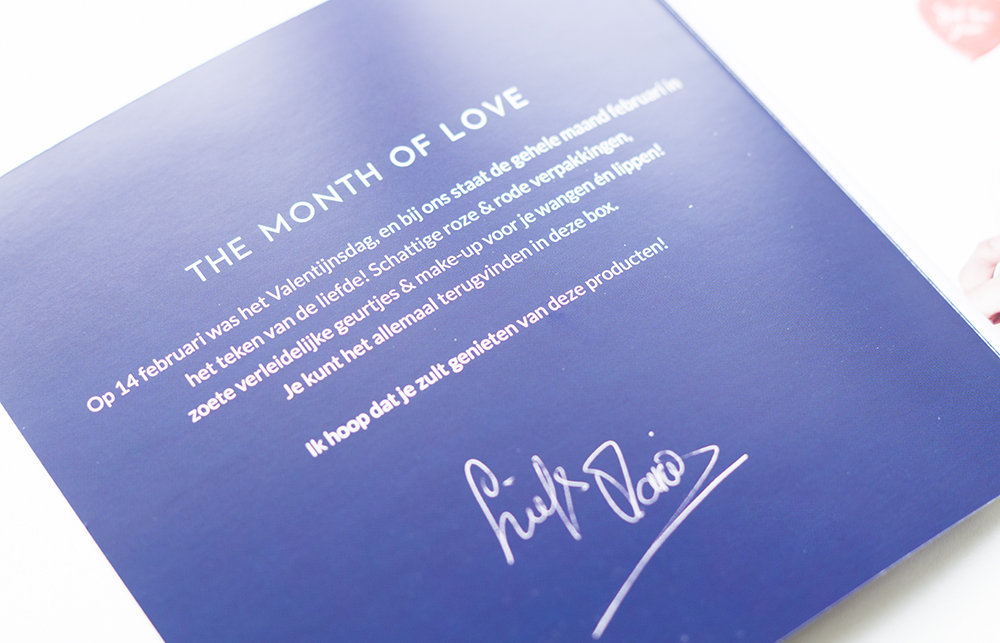 THE MONTH OF LOVE
Op 14 februari was het Valentijnsdag, en bij ons staat de gehele maand februari in
het teken van de liefde! Schattige roze & rode verpakkingen,
zoete verleidelijke geurtjes & make-up voor je wangen én lippen!
Je kunt het allemaal terugvinden in deze box.
Ik hoop dat je zult genieten van deze producten!
Liefs